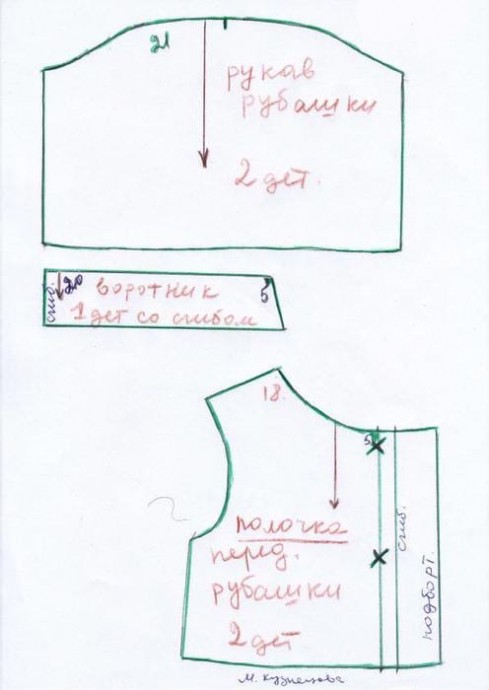 21
рукав
рубашки
2 дет.
сгиб.
20
воротник
5
1 дет со сгибом
18.
5
сгиб.
полочка
перед.
рубашки
2 дет
подборт.
М. Кузнецова